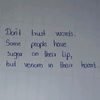 Don't trust words.
Some people have
sugar on their lip,
but venom in their heart.